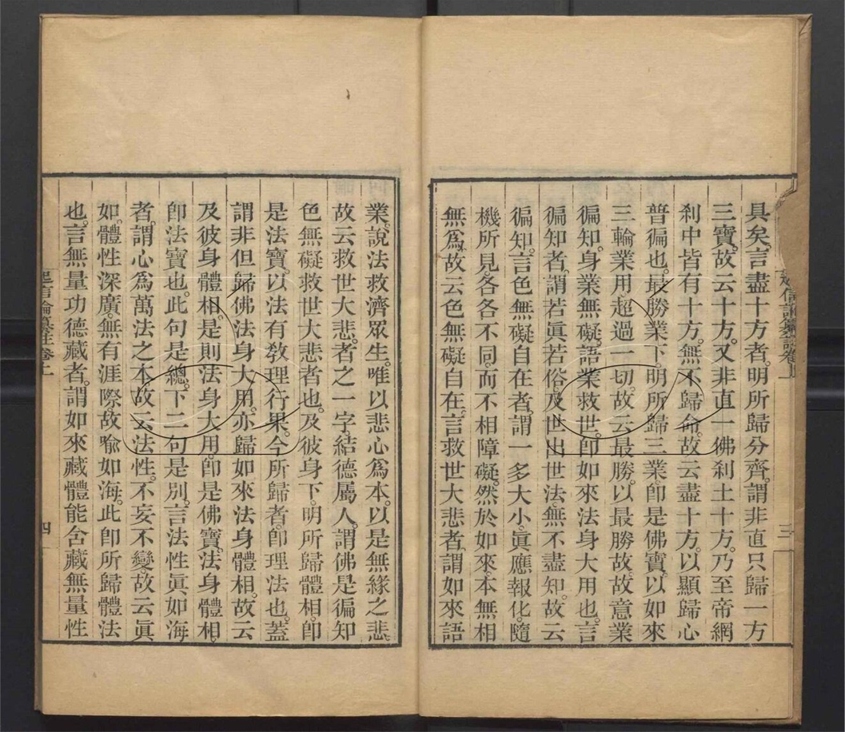 具矣。言盡十方者。明所歸分齊。謂非直只歸一方
三寶。故云十方。又非直一佛剎土十方。乃至帝網
剎中皆有十方。無不歸命。故云盡十方。以顯歸心
普徧也。最勝業下。明所歸三業。卽是佛寶。以如來
三輪業用超過一切。故云最勝。以最勝故。故意業
徧知。身業無礙。語業救世。卽如來法身大用也。言
徧知者。謂若眞若俗。及世出世法。無不盡知。故云
徧知。言色無礙自在者。謂一多大小。眞應報化。隨
機所見各各不同。而不相障礙。然於如來本無相
無爲。故云色無礙自在。言救世大悲者。謂如來語
三
業。說法救濟眾生。唯以悲心爲本。以是無緣之悲。
故云救世大悲。者之一字。結德屬人。謂佛是徧知
色無礙救世大悲者也。及彼身下。明所歸體相。卽
是法寶。以法有敎理行果。今所歸者。卽理法也。蓋
謂非但歸佛法身大用。亦歸如來法身體相。故云
及彼身體相。是則法身大用。卽是佛寶。法身體相。
卽法寶也。此句是總。下二句是別。言法性眞如海
者。謂心爲萬法之本。故云法性。不妄不變。故云眞
如。體性深廣。無有涯際。故喩如海。此卽所歸體法
也。言無量功德藏者。謂如來藏體。能含藏無量性
起信論纂註卷上
四